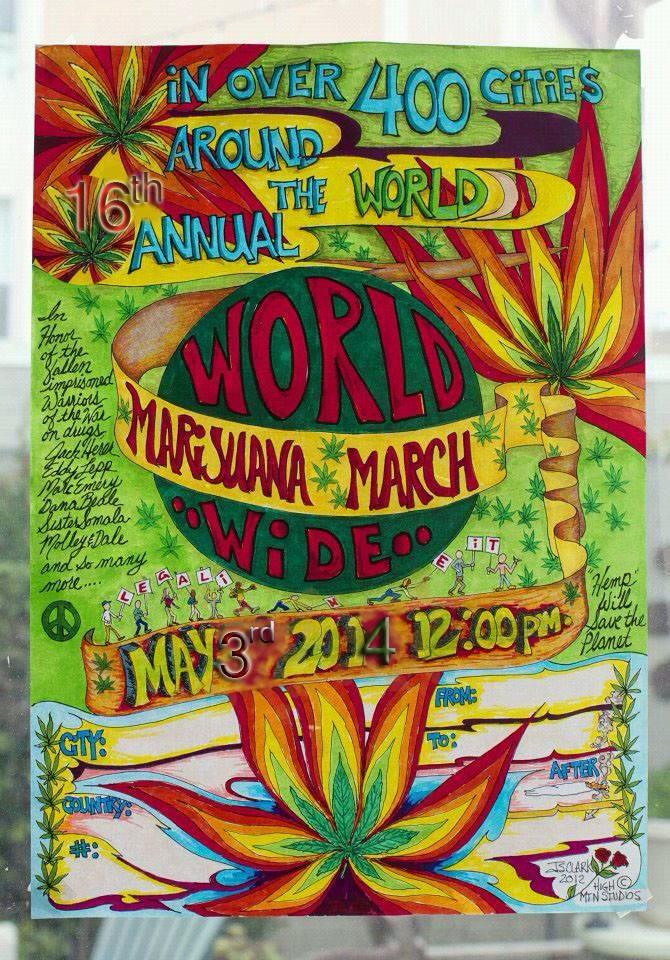 iN OVER 400 CiTiES
AROUND
THE WORLD
16th
ANNUAL
WORLD
MARiJUANA MARCH
WiDE
In
Honor
of the
Fallen
imprisoned
Warriors
of the War
on drugs
Jack Herer
Eddy Lepp
Marc Emery
Dana Beale
Sister Somala
Molley & Dale
and so many
more....
LEGALI
E iT
MAY 3rd 2014 12:00pm.
"Hemp"
Will
Save the
Planet
CiTY:
COUNTRY:
#:
FROM:
To:
AFTER:
JSCLARK
2012
HiGH ©
MTN STUDIOS